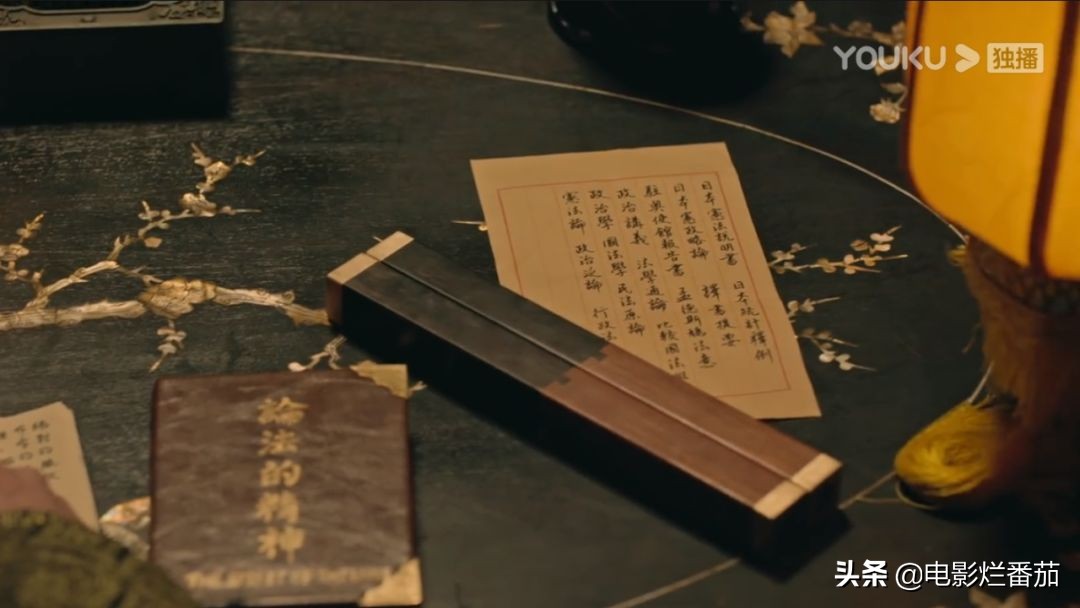 YOUKU 独播
日本憲法說明書 日本統計釋例
日本憲政略論 譯書提要
駐奧使館報告書 孟德斯鳩法意
政治講義 法學通論 比較國法
政治學 國法學 民法原論
憲法論 政治泛論 行政法
論法的精神
头条 @电影烂番茄